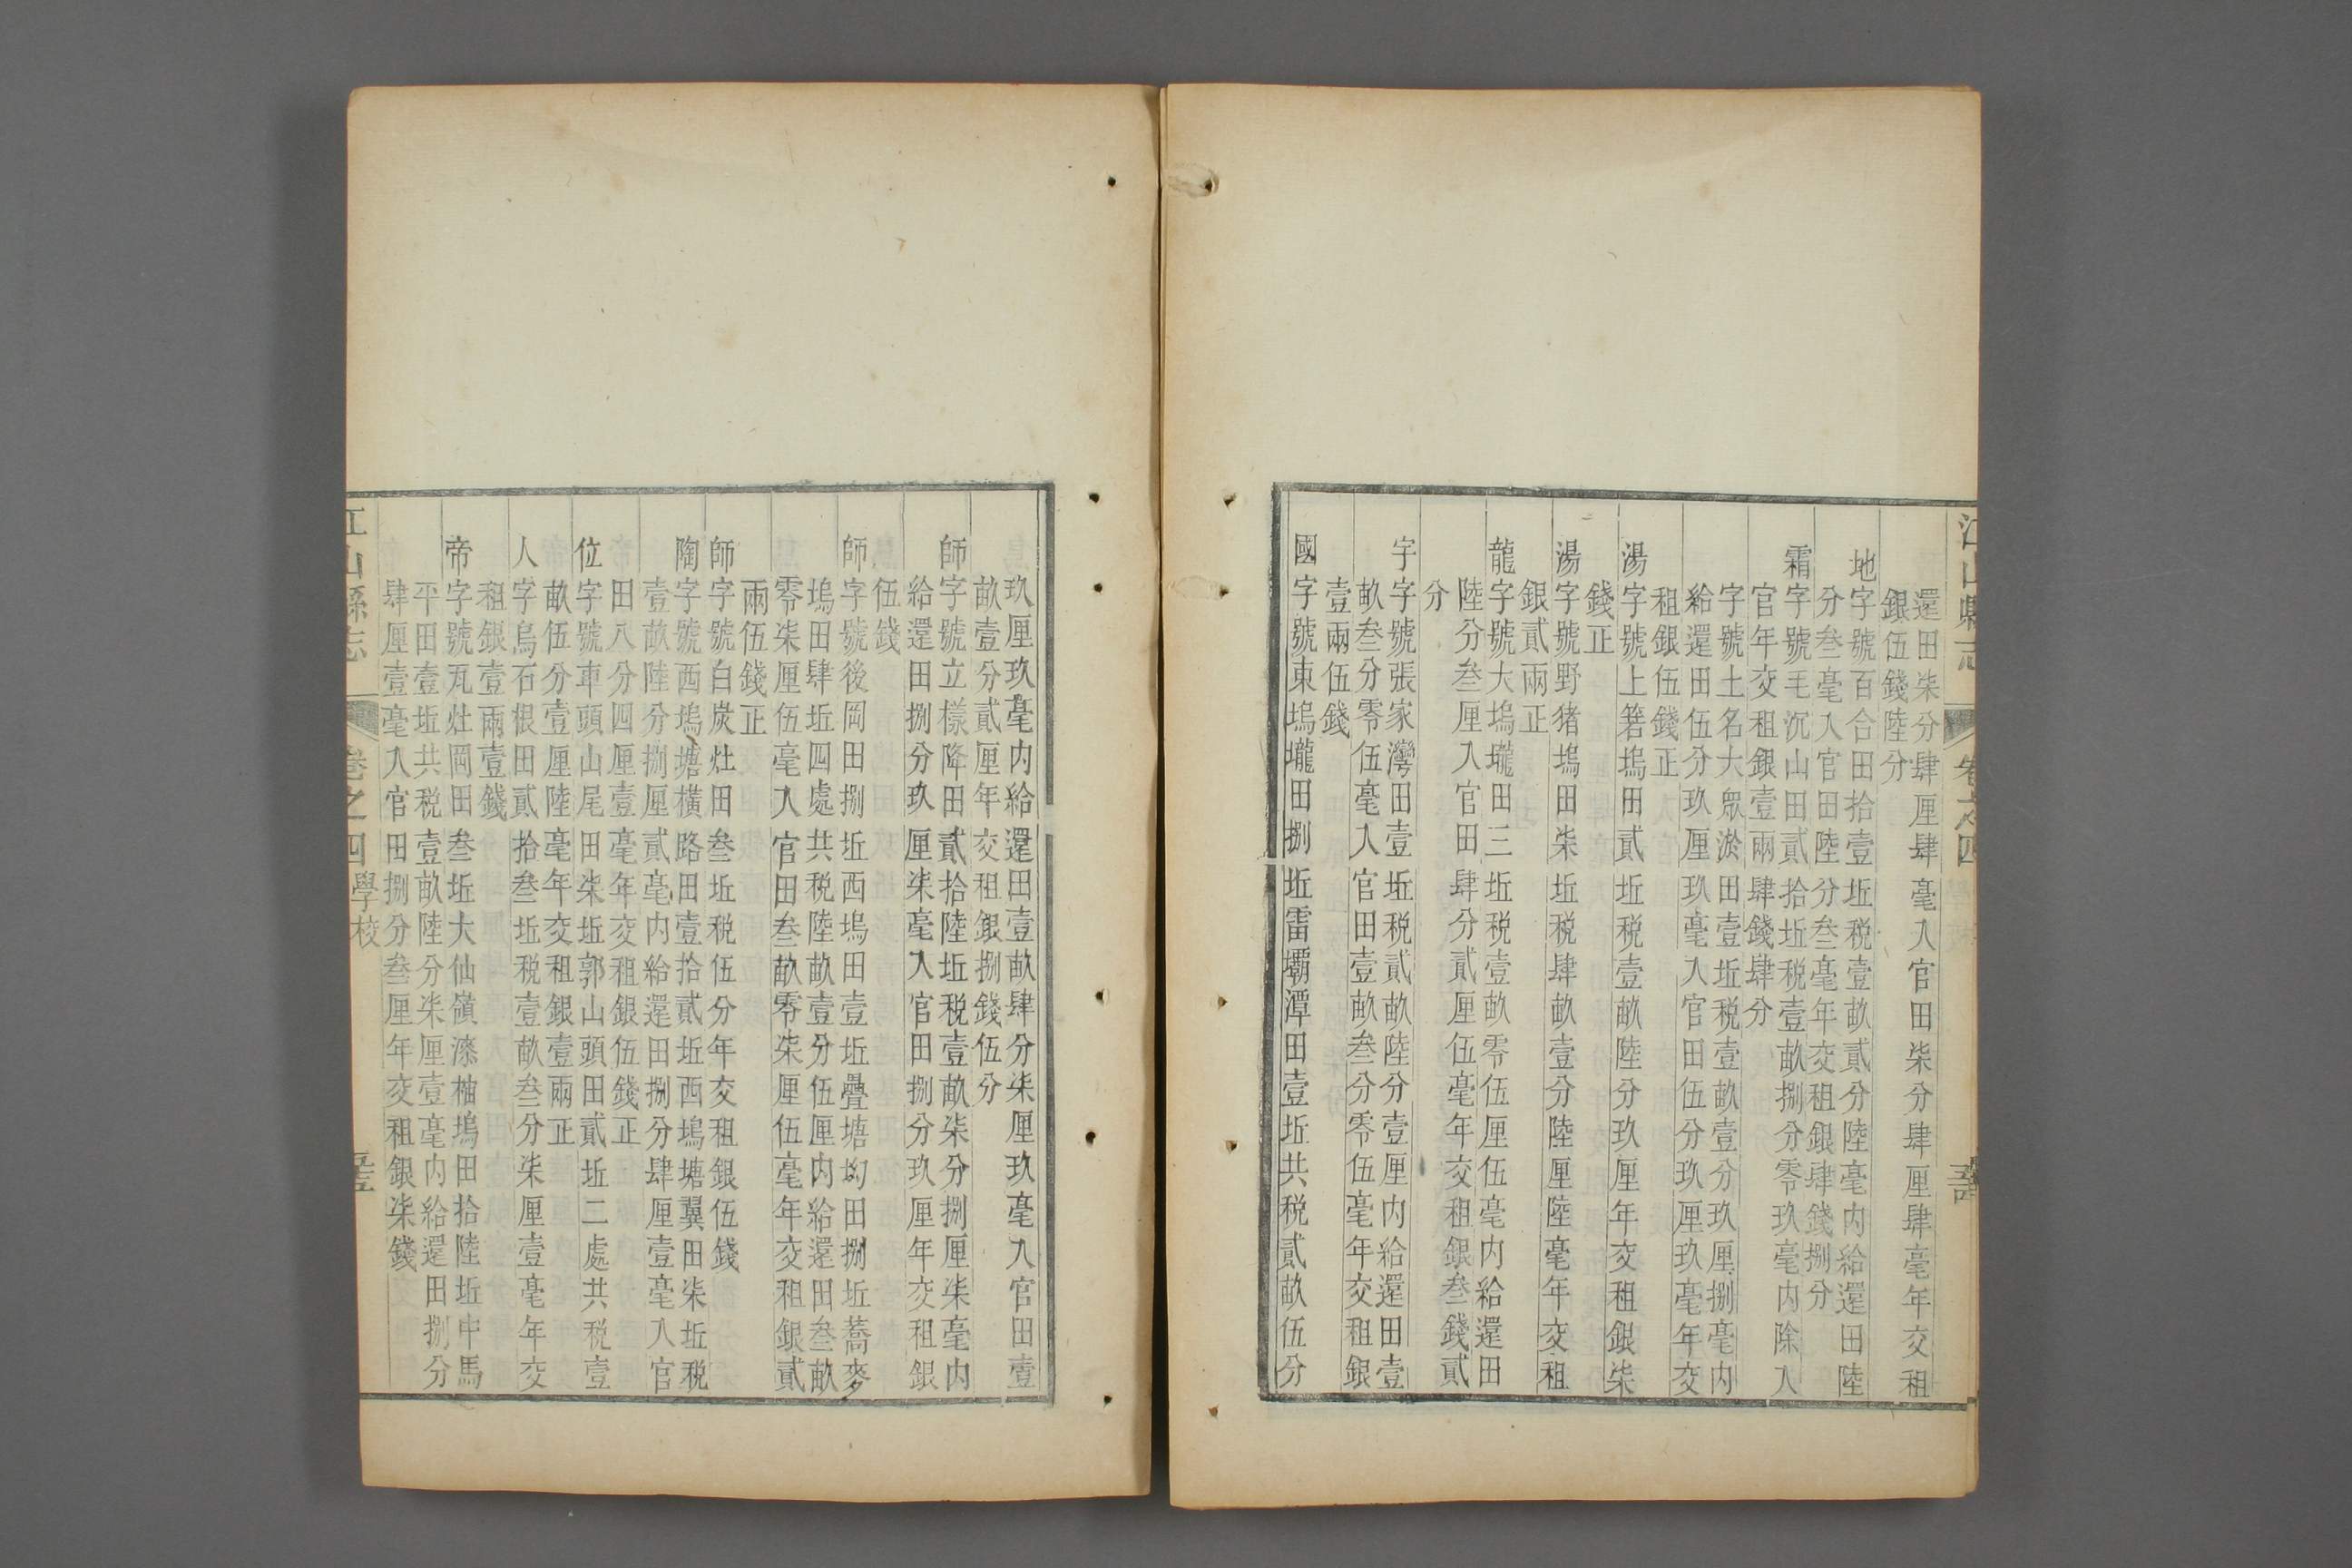 江山縣志
卷之四
還田柒分肆厘肆毫入官田柒分肆厘肆毫年交租
銀伍錢陸分
地字號百合田拾壹坵税壹畝貳分陸毫内給還田陸
分叁毫入官田陸分叁毫年交租銀肆錢捌分
霜字號毛沉山田貳拾坵税壹畝捌分零玖毫内除入
官年交租銀壹兩肆錢肆分
字號土名大眾淤田壹坵税壹畝壹分玖厘捌毫内
給還田伍分玖厘玖毫入官田伍分玖厘玖毫年交
租銀伍錢正
湯字號上箬塢田貳坵税壹畝陸分玖厘年交租銀柒
錢正
湯字號野猪塢田柒坵税肆畝壹分陸厘陸毫年交租
銀貳兩正
龍字號大塢壠田三坵税壹畝零伍厘伍毫内給還田
陸分叁厘入官田肆分貳厘伍毫年交租銀叁錢貳
分
字字號張家灣田壹坵税貳畝陸分壹厘内給還田壹
畝叁分零伍毫入官田壹畝叁分零伍毫年交租銀
壹兩伍錢
國字號東塢壠田捌坵雷壩潭田壹坵共税貳畝伍分
玖厘玖毫内給還田壹畝肆分柒厘玖毫入官田壹
畝壹分貳厘年交租銀捌錢伍分
師字號立樣降田貳拾陸坵税壹畝柒分捌厘柒毫内
給還田捌分玖厘柒毫入官田捌分玖厘年交租銀
伍錢
師字號後岡田捌坵西塢田壹坵疊塘均田捌坵蕎麥
塢田肆坵四處共税陸畝壹分伍厘内給還田叁畝
零柒厘伍毫入官田叁畝零柒厘伍毫年交租銀貳
兩伍錢正
師字號白炭灶田叁坵税伍分年交租銀伍錢
陶字號西塢塘橫路田壹拾貳坵西塢塘翼田柒坵税
壹畝陸分捌厘貳毫内給還田捌分肆厘壹毫入官
田八分四厘壹毫年交租銀伍錢正
位字號車頭山尾田柒坵郭山頭田貳坵二處共税壹
畝伍分壹厘陸毫年交租銀壹兩正
人字烏石根田貳拾叁坵税壹畝叁分柒厘壹毫年交
租銀壹兩壹錢
帝字號瓦灶岡田叁坵大仙嶺漆柚塢田拾陸坵中馬
平田壹坵共税壹畝陸分柒厘壹毫内給還田捌分
肆厘壹毫入官田捌分叁厘年交租銀柒錢
江山縣志
卷之四
學校